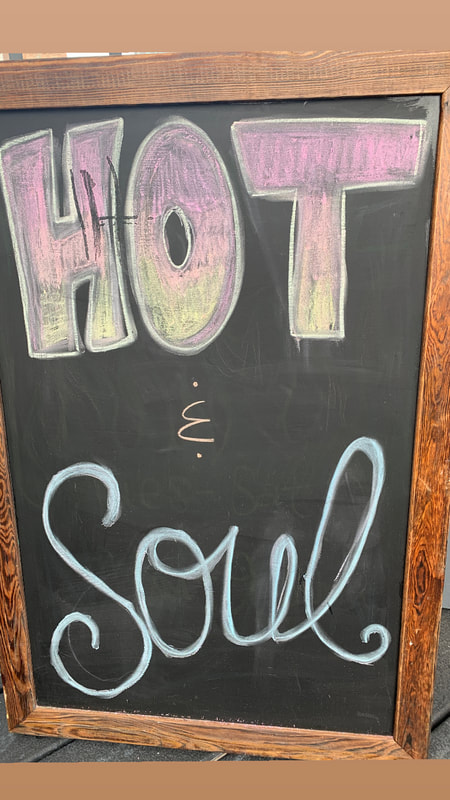 HOT
&
Soul